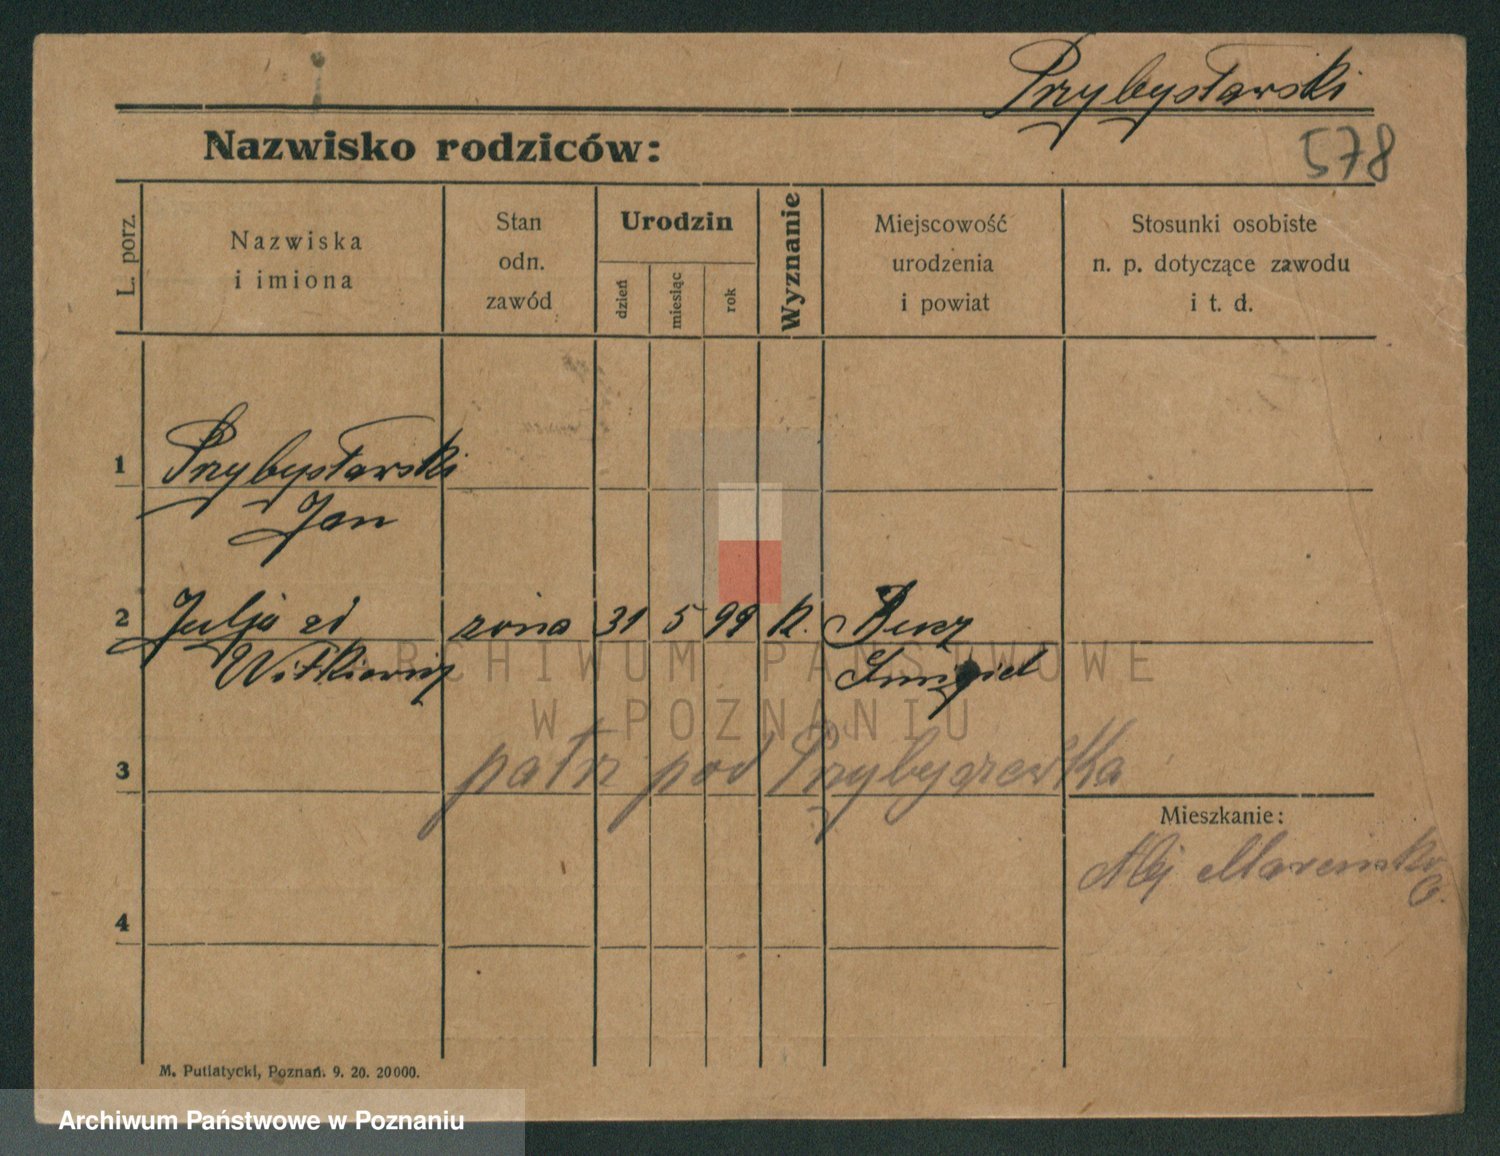 Przybysławski
578
Nazwisko rodziców:
L. porz.
Nazwiska
i imiona
Stan
odn.
zawód
Urodzin
dzień
miesiąc
rok
Wyznanie
Miejscowość
urodzenia
i powiat
Stosunki osobiste
n. p. dotyczące zawodu
i t. d.
1
Przybysławski
Jan
2
Julja zd
żona
31
5
99
k.
Witkiewicz
Śmigiel
ARCHIWUM PAŃSTWOWE
W POZNANIU
3
patrz pod
4
Mieszkanie:
Alej
M. Putiatycki, Poznań. 9. 20. 20000.
Archiwum Państwowe w Poznaniu